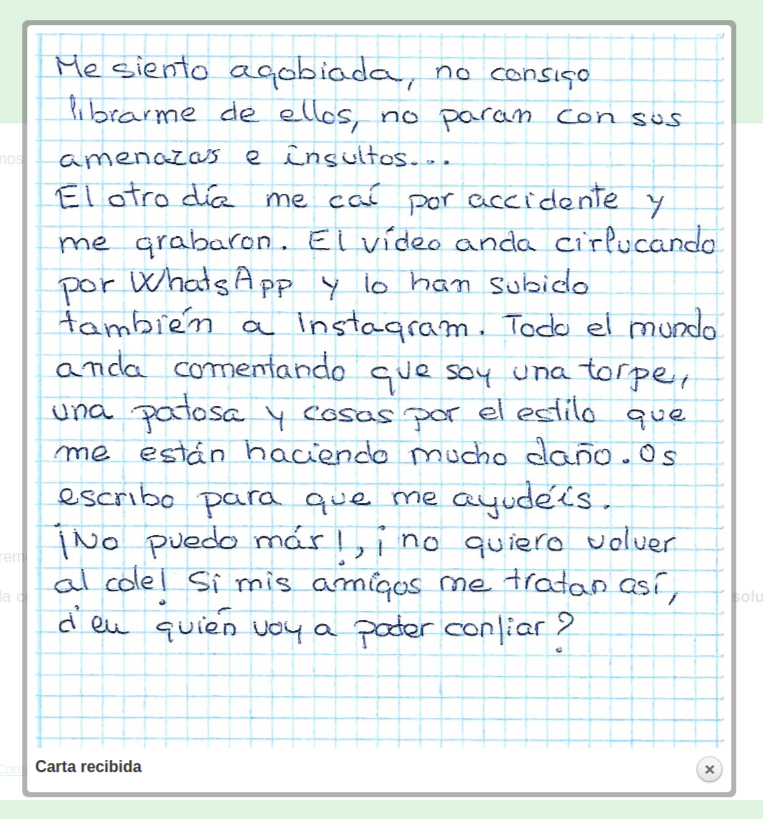 Me siento agobiada, no consigo
librarme de ellos, no paran con sus
amenazas e insultos...
El otro día me caí por accidente y
me grabaron. El vídeo anda cirlucando
por WhatsApp y lo han subido
también a Instagram. Todo el mundo
anda comentando que soy una torpe,
una patosa y cosas por el estilo que
me están haciendo mucho daño. Os
escribo para que me ayudéis.
¡No puedo más!, ¡no quiero volver
al cole! Si mis amigos me tratan así,
¿en quién voy a poder confiar?
Carta recibida
mos
rem
la
solu
Com